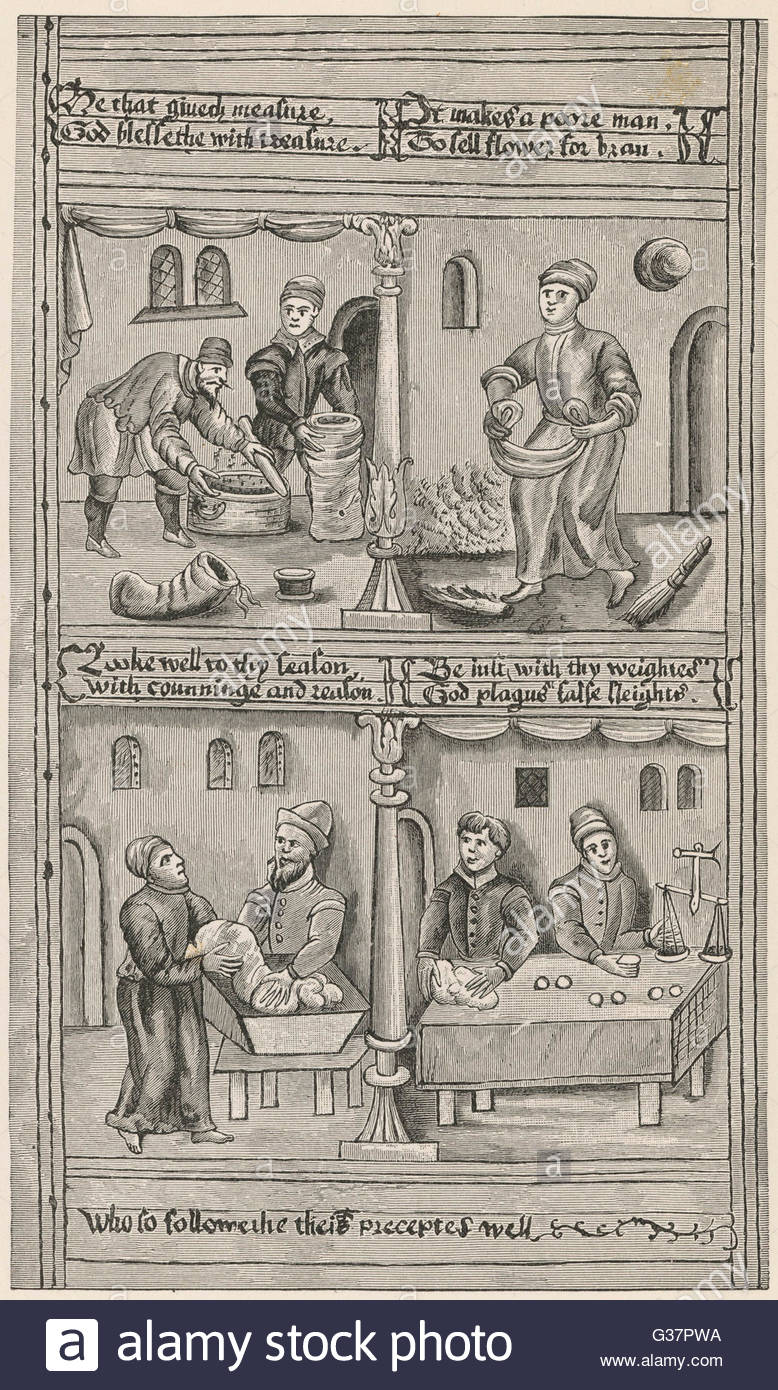 He that giueth measure,
God blessethe with treasure.
It makes a poore man,
To sell flower for bran.
Looke well to thy season,
with counninge and reason.
Be iust with thy weightes
God plagus false sleights.
Who so followethe theis preceptes well
a alamy stock photo
G37PWA
www.alamy.com